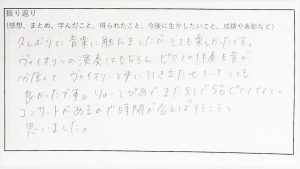 振り返り
(感想、まとめ、学んだこと、得られたこと、今後に生かしたいこと、成績や表彰など)
久しぶりに音楽に触れましたがとても楽しかったです。
ヴァイオリンの演奏はもちろん ピアノの伴奏も音が
分厚くて ヴァイオリンを更に引き立たせていて とても
良かったです。りゅーとぴあでまた別で ピアノなど
コンサートがあるので時間が合えば行こうと
思いました。